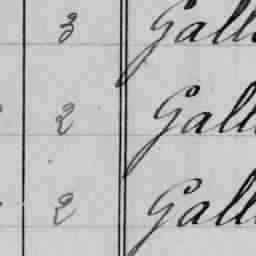 3 Gall
2 Gall
2 Gall